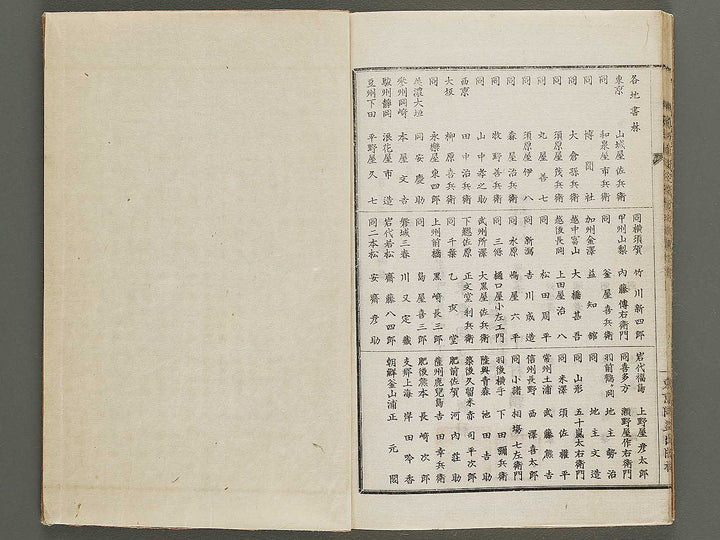 各地書林
東京 山城屋佐兵衛
同 和泉屋市兵衛
同 博聞社
同 大倉孫兵衛
同 須原屋茂兵衛
同 丸屋善七
同 須原屋伊八
同 森屋治兵衛
同 牧野善兵衛
同 山中孝之助
西京 田中治兵衛
大坂 柳原喜兵衛
同 永樂屋東四郎
美濃大垣 岡安慶助
參州岡崎 本屋文吉
駿州靜岡 浪花屋市造
豆州下田 平野屋久七
同橫須賀 竹川新四郎
甲州山梨 內藤傳右衛門
同 釜屋喜兵衛
加州金澤 益知館
越中富山 大橋甚吾
越後長岡 上田屋治八
同 松田周平
同新潟 吉川成造
同水原 嶋屋六平
同三條 樋口屋小左エ門
武州所澤 大黑屋佐兵衛
下總佐原 正文堂利兵衛
同千葉 乙亥堂
上州前橋 黑崎長三郎
同 島屋喜三郎
磐城三春 川又定藏
岩代若松 齋藤八四郎
同二本松 安齋彥助
岩代福島 上野屋彥太郎
同喜多方 瀨野屋作右衛門
羽前鶴ヶ岡 地主勢治
同 地主文造
同山形 五十嵐太右衛門
同米澤 須佐權平
常州土浦 武藤熊吉
信州長野 西澤喜太郎
同小諸 相場七左衛門
羽後橫手 下田彌兵衛
陸奧青森 池田吉助
築後久留米 赤司平次郎
肥前佐賀 河內莊助
薩州鹿兒島 吉田幸兵衛
肥後熊本 長崎次郎
支那上海 岸田吟香
朝鮮釜山浦 正元閣